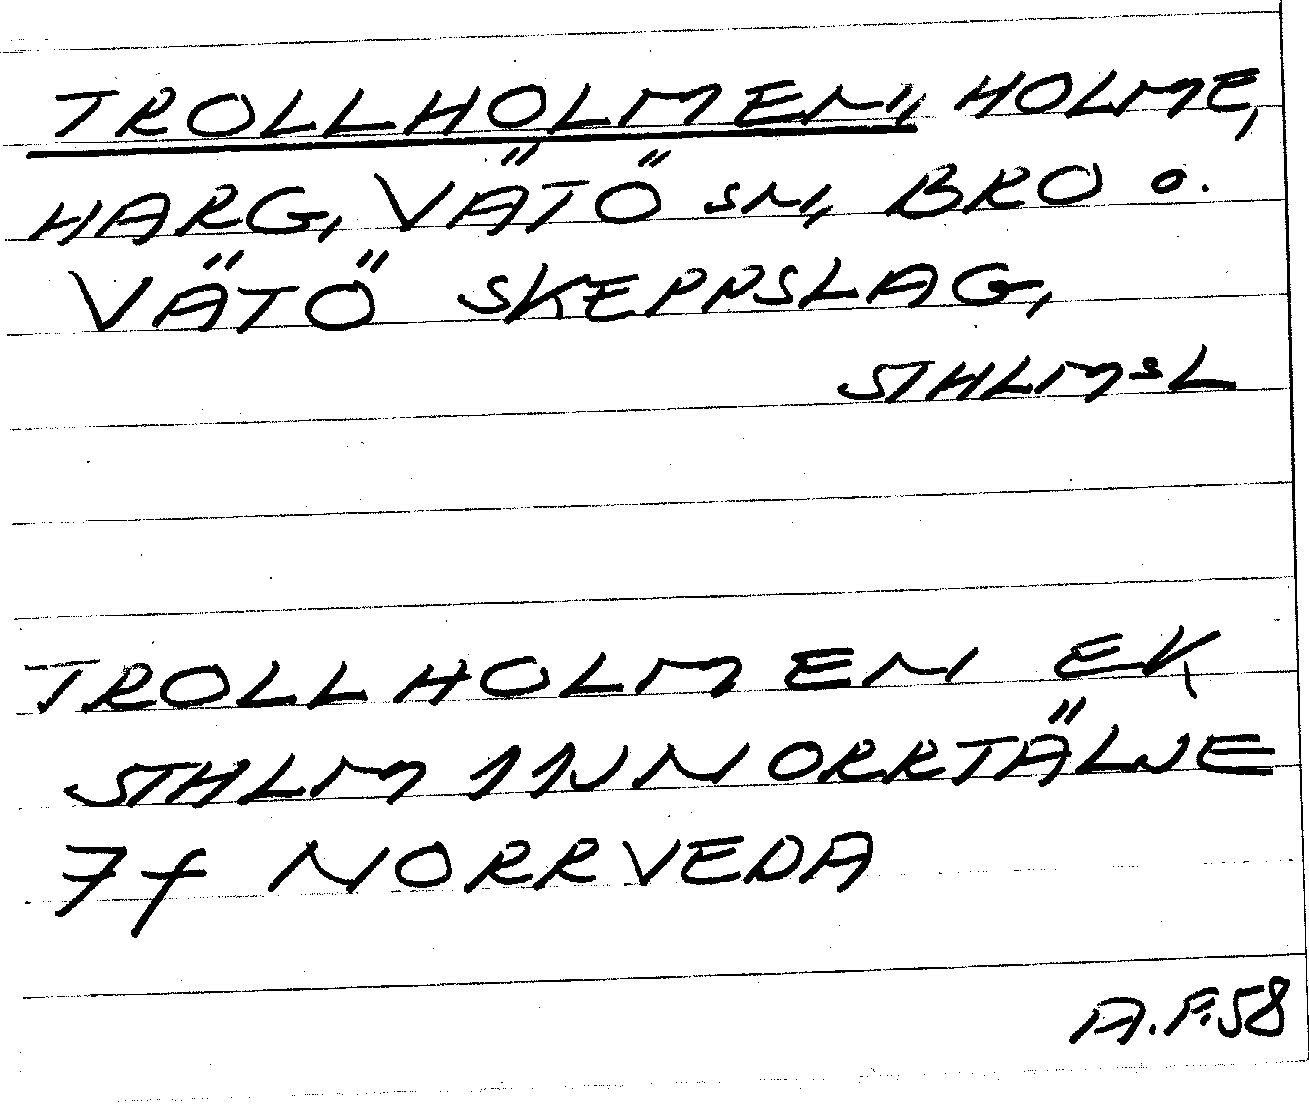 TROLLHOLMEN, HOLME,
HARG, VÄTÖ SN, BRO o.
VÄTÖ SKEPPSLAG,
STHLMSL
TROLLHOLMEN EK
STHLM 11J NORRTÄLJE
7f NORRVEDA
A.F.58